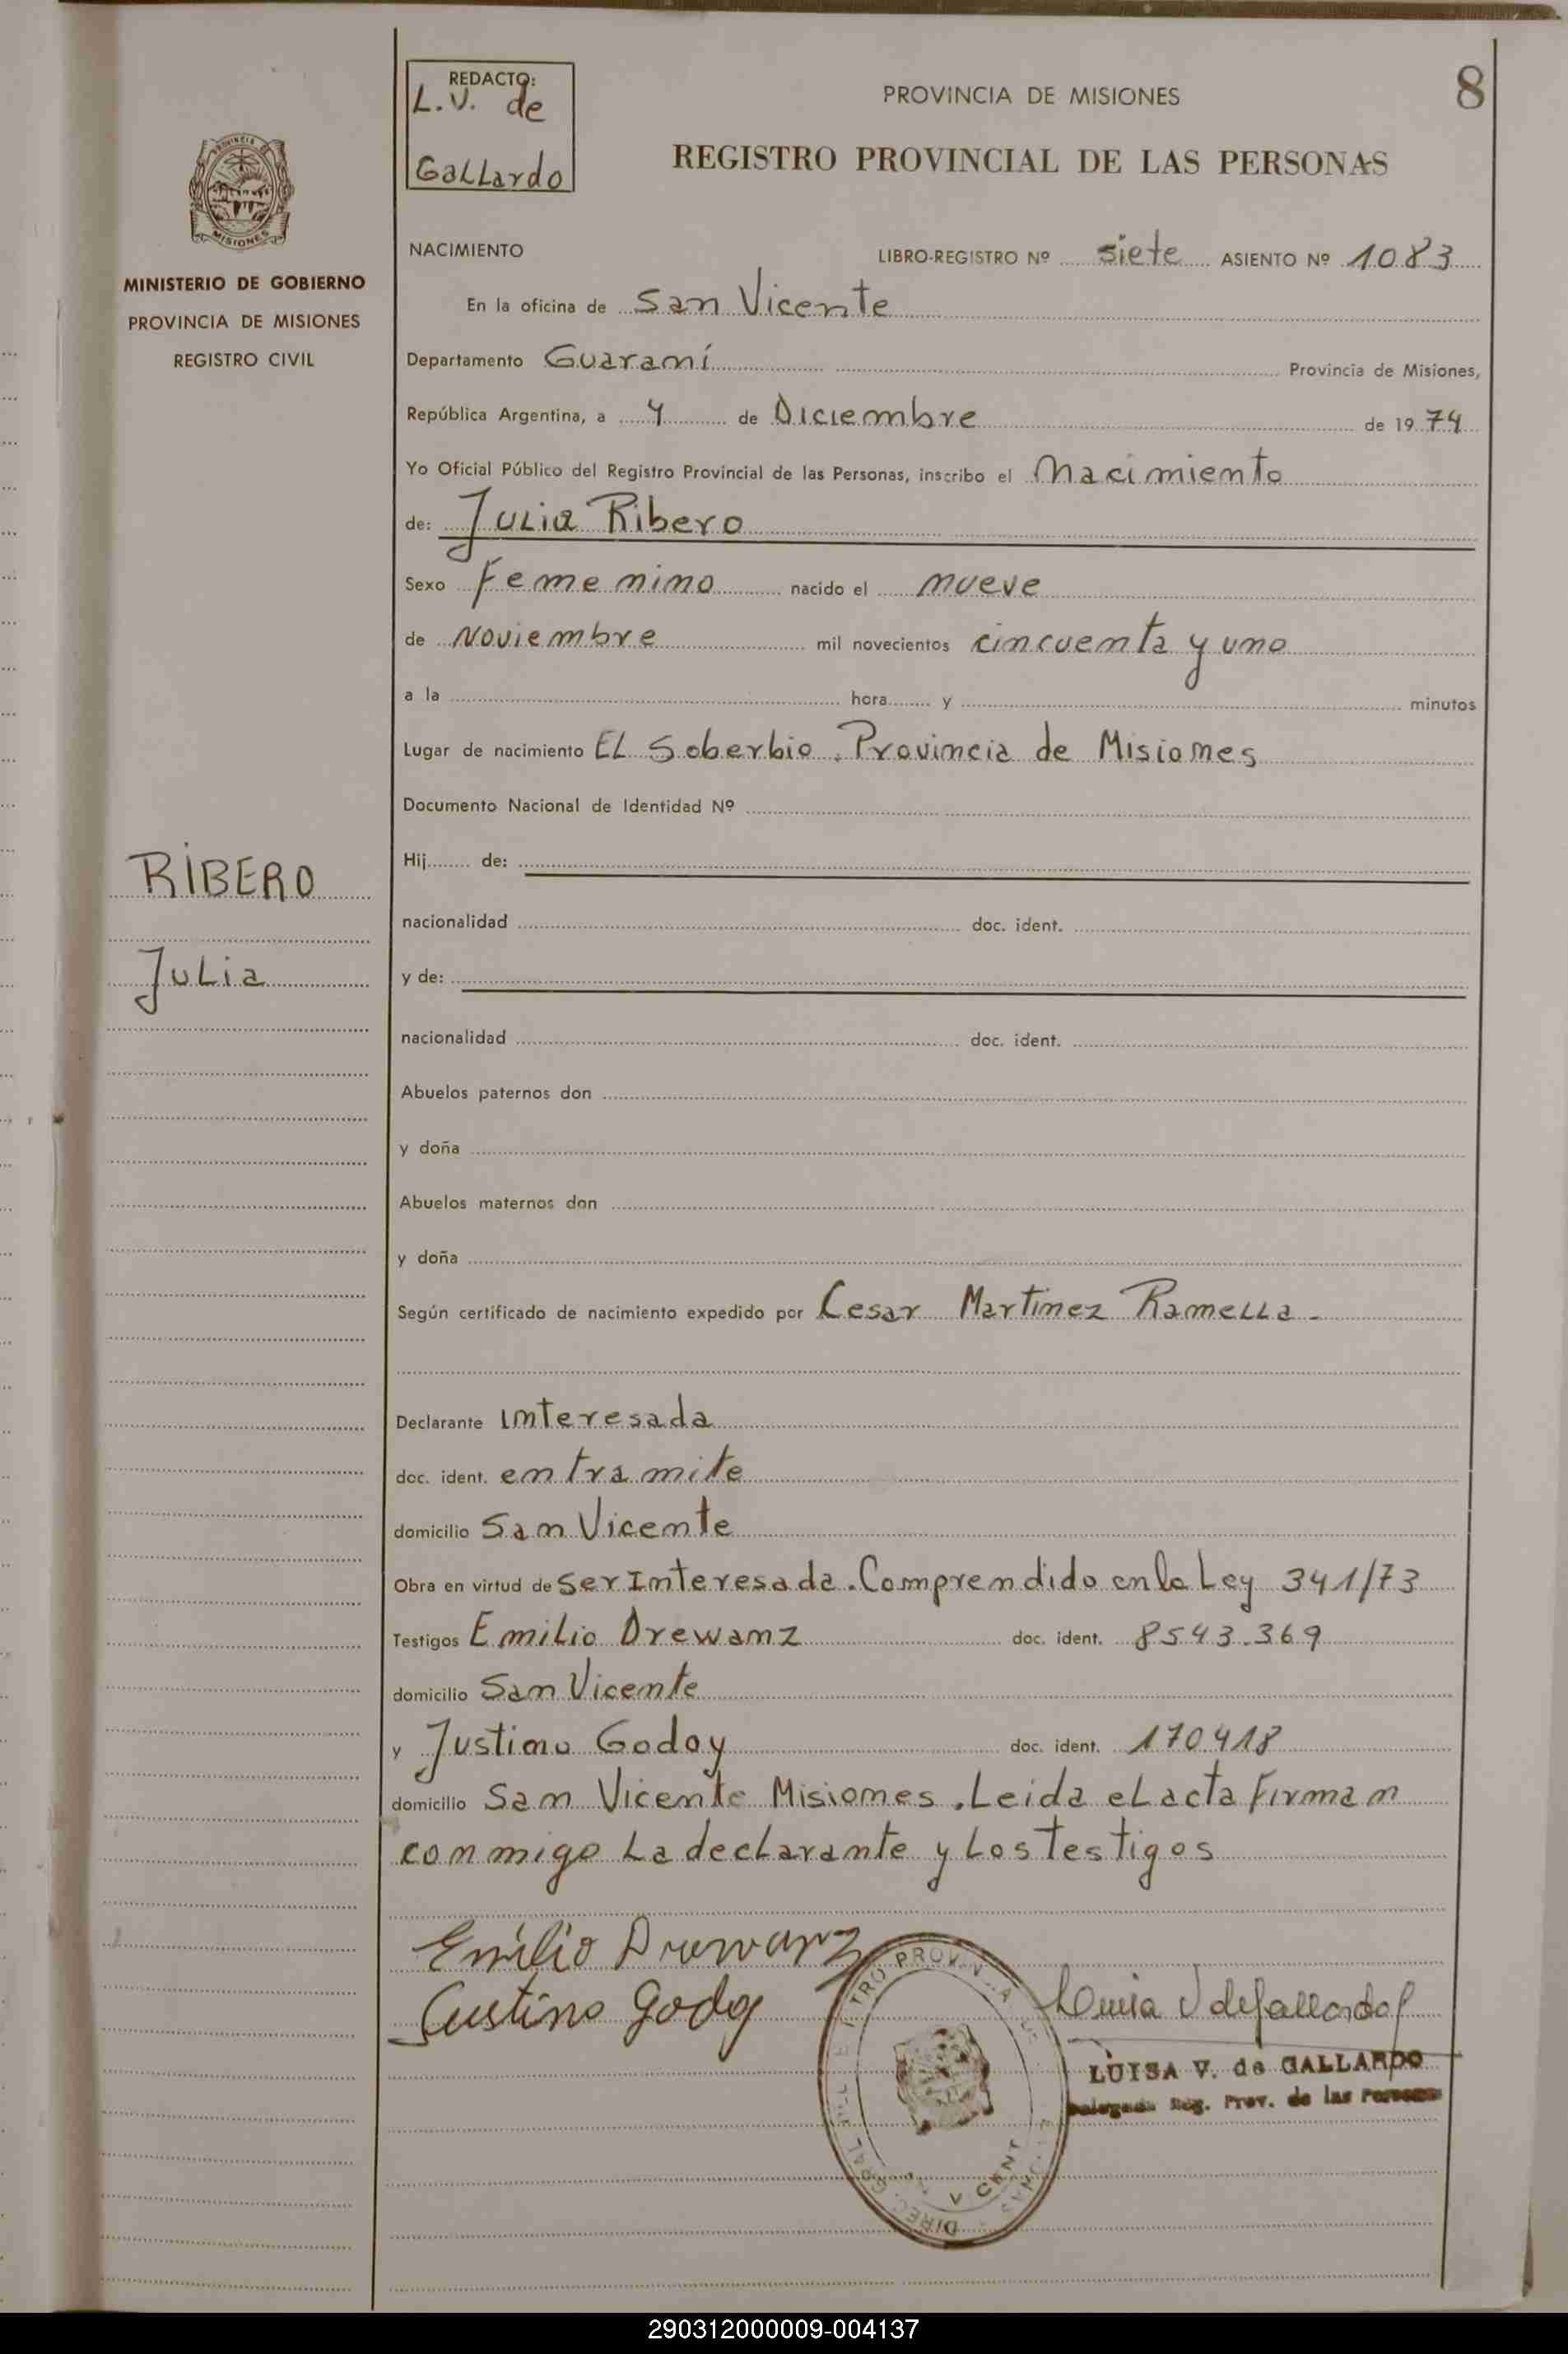 REDACTO:
L.V. de
Gallardo
PROVINCIA DE MISIONES
8
REGISTRO PROVINCIAL DE LAS PERSONAS
PROVINCIA DE
MISIONES
MINISTERIO DE GOBIERNO
PROVINCIA DE MISIONES
REGISTRO CIVIL
NACIMIENTO
LIBRO-REGISTRO Nº siete ASIENTO Nº 1083
En la oficina de San Vicente
Departamento Guaraní Provincia de Misiones,
República Argentina, a 4 de Diciembre de 1974
Yo Oficial Público del Registro Provincial de las Personas, inscribo el Nacimiento
de: Julia Ribero
Sexo Femenino nacido el nueve
de Noviembre mil novecientos cincuenta y uno
a la hora y minutos
Lugar de nacimiento El Soberbio. Provincia de Misiones
Documento Nacional de Identidad Nº
RIBERO
Julia
Hij de:
nacionalidad doc. ident.
y de:
nacionalidad doc. ident.
Abuelos paternos don
y doña
Abuelos maternos don
y doña
Según certificado de nacimiento expedido por Cesar Martinez Ramella -
Declarante interesada
doc. ident. en tramite
domicilio San Vicente
Obra en virtud de ser interesada. Comprendido en la Ley 341/73
Testigos Emilio Drewanz doc. ident. 8543.369
domicilio San Vicente
y Justino Godoy doc. ident. 170418
domicilio San Vicente Misiones. Leida el acta Firman
conmigo La declarante y Los Testigos
Emilio Drewanz
Justino Godoy
Luisa V de Gallardo
LUISA V. de GALLARDO
Delegada Reg. Prov. de las Personas
290312000009-004137